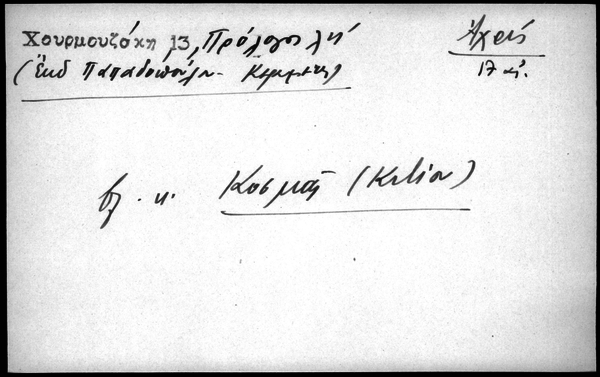 Χουρμουζάκη 13, Πρόλογος λή
(Ἐκδ Παπαδοπούλου - Κεραμεως)
17 αἰ.
βλ. κ. Κοσμᾶς (Κιτίου)